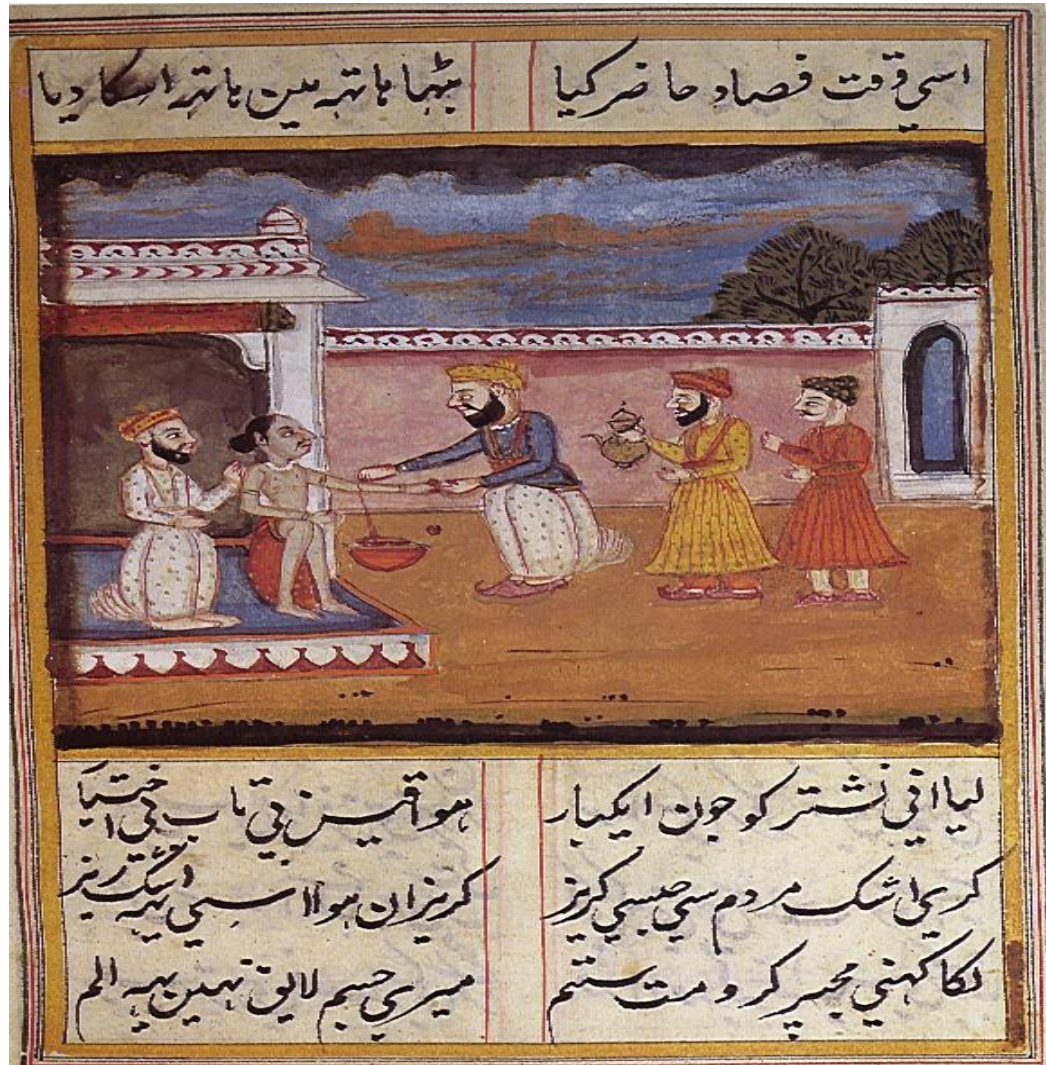 اسي وقت فصاد حاضر کیا بٹہا ہاتہہ مین ہاتہہ اسکا دیا
لیا اني نشتر کو جون ایکبار ہوا قیس بي تاب بي اختیا
کري اشک مردم سي جیسي کریز کریزان ہوا اسي اشک ریز
لکا کہني مجہپر کرو مت ستم میري جسم لایق نہین یہہ الم